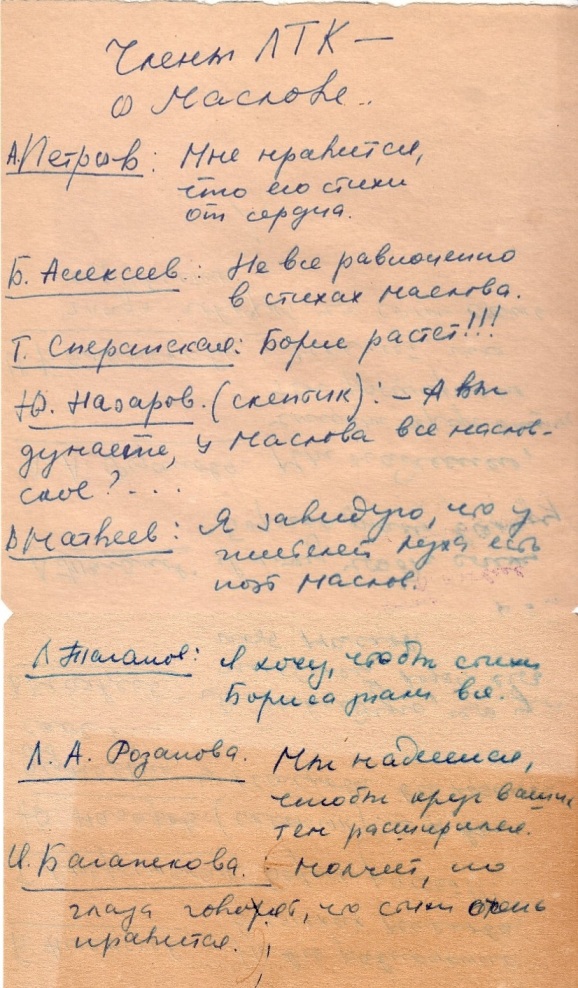 Члены ЛТК —
о Маслове..
А.Петров: Мне нравится,
что его стихи
от сердца.
Б. Алексеев: Не все равноценно
в стихах Маслова.
Т. Сперанская: Борис растет!!!
Ю. Назаров. (скептик): – А вы
думаете, у Маслова все маслов-
ское?....
В Матвеев: Я завидую, что у
жителей Луха есть
поэт Маслов.
Л. Таганов: Я хочу, чтобы стихи
Бориса знали все.
Л. А. Розанова. Мы надеемся,
чтобы круг ваших
тем расширился.
И. Баганекова. Молчит, но
глаза говорят, что стихи очень
нравится.